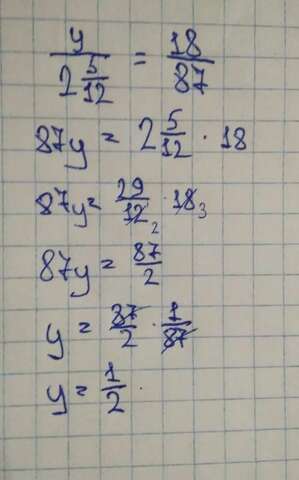 y / 2 5/12 = 18/87
87y = 2 5/12 · 18
87y = 29/12 2 · 18 3
87y = 87/2
y = 87/2 · 1/87
y = 1/2 .